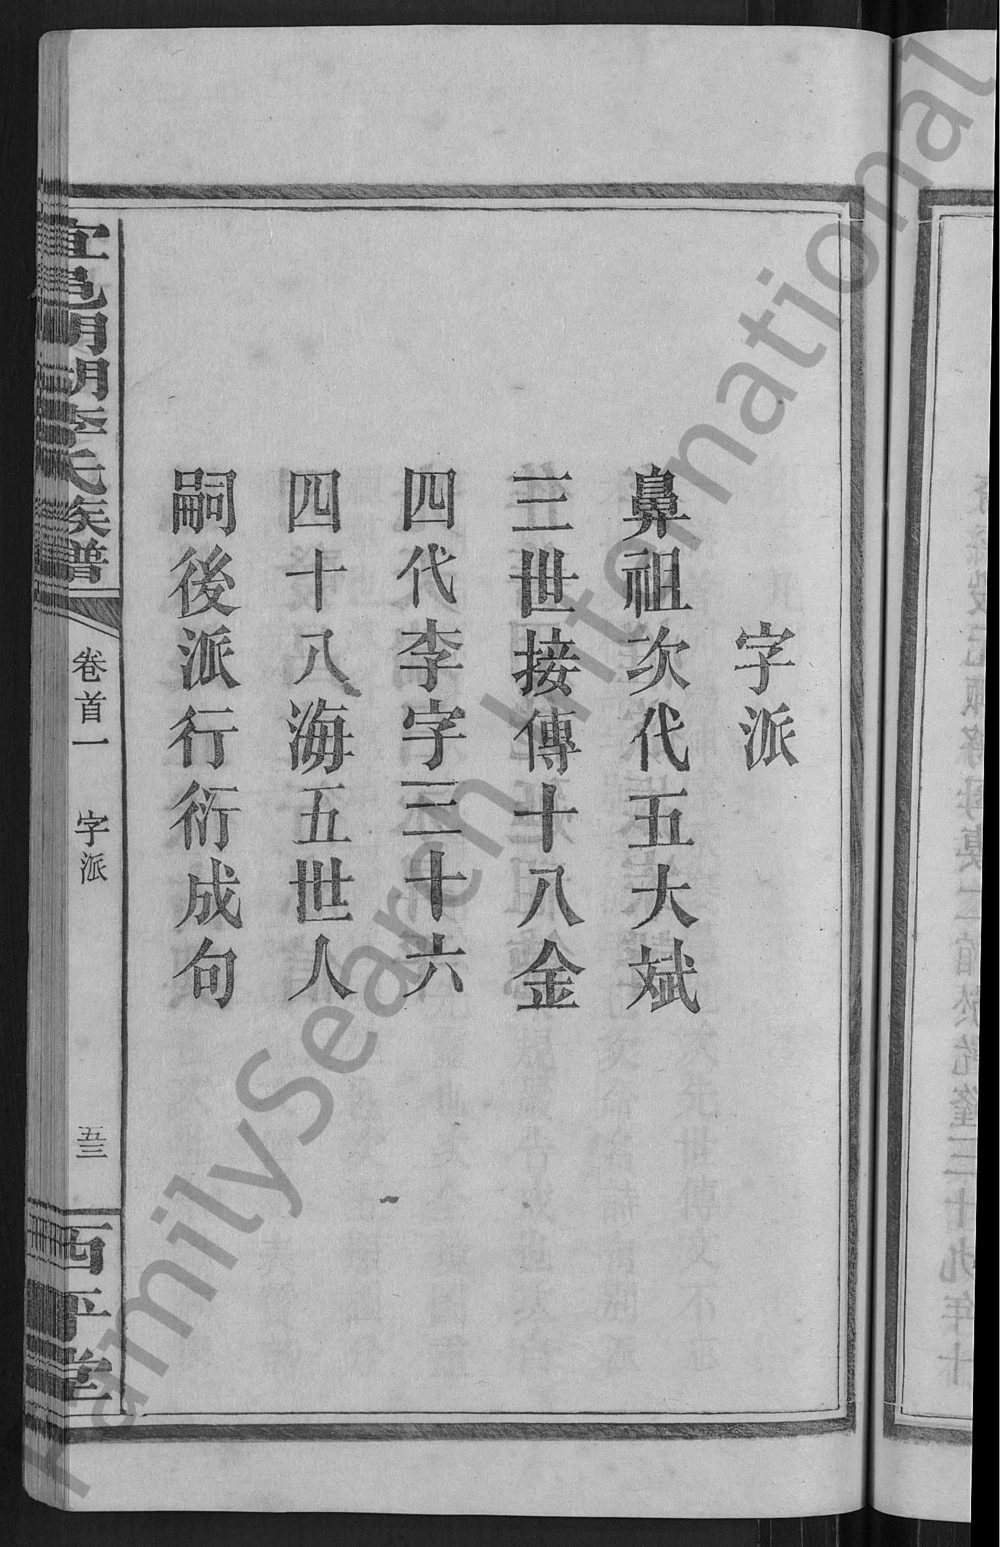 字派
鼻祖次代五大斌
三世接傳十八金
四代李字三十六
四十八海五世人
嗣後派行衍成句
宜邑明胡李氏族譜
卷首一
字派
五三
西平堂
FamilySearch International